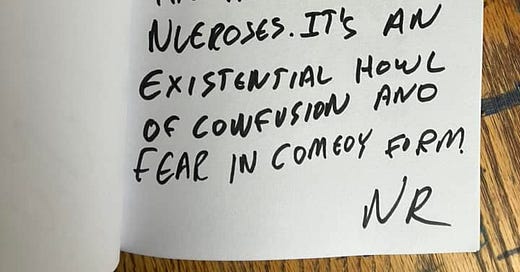 NUEROSES. IT'S AN
EXISTENTIAL HOWL
OF CONFUSION AND
FEAR IN COMEDY FORM
NR